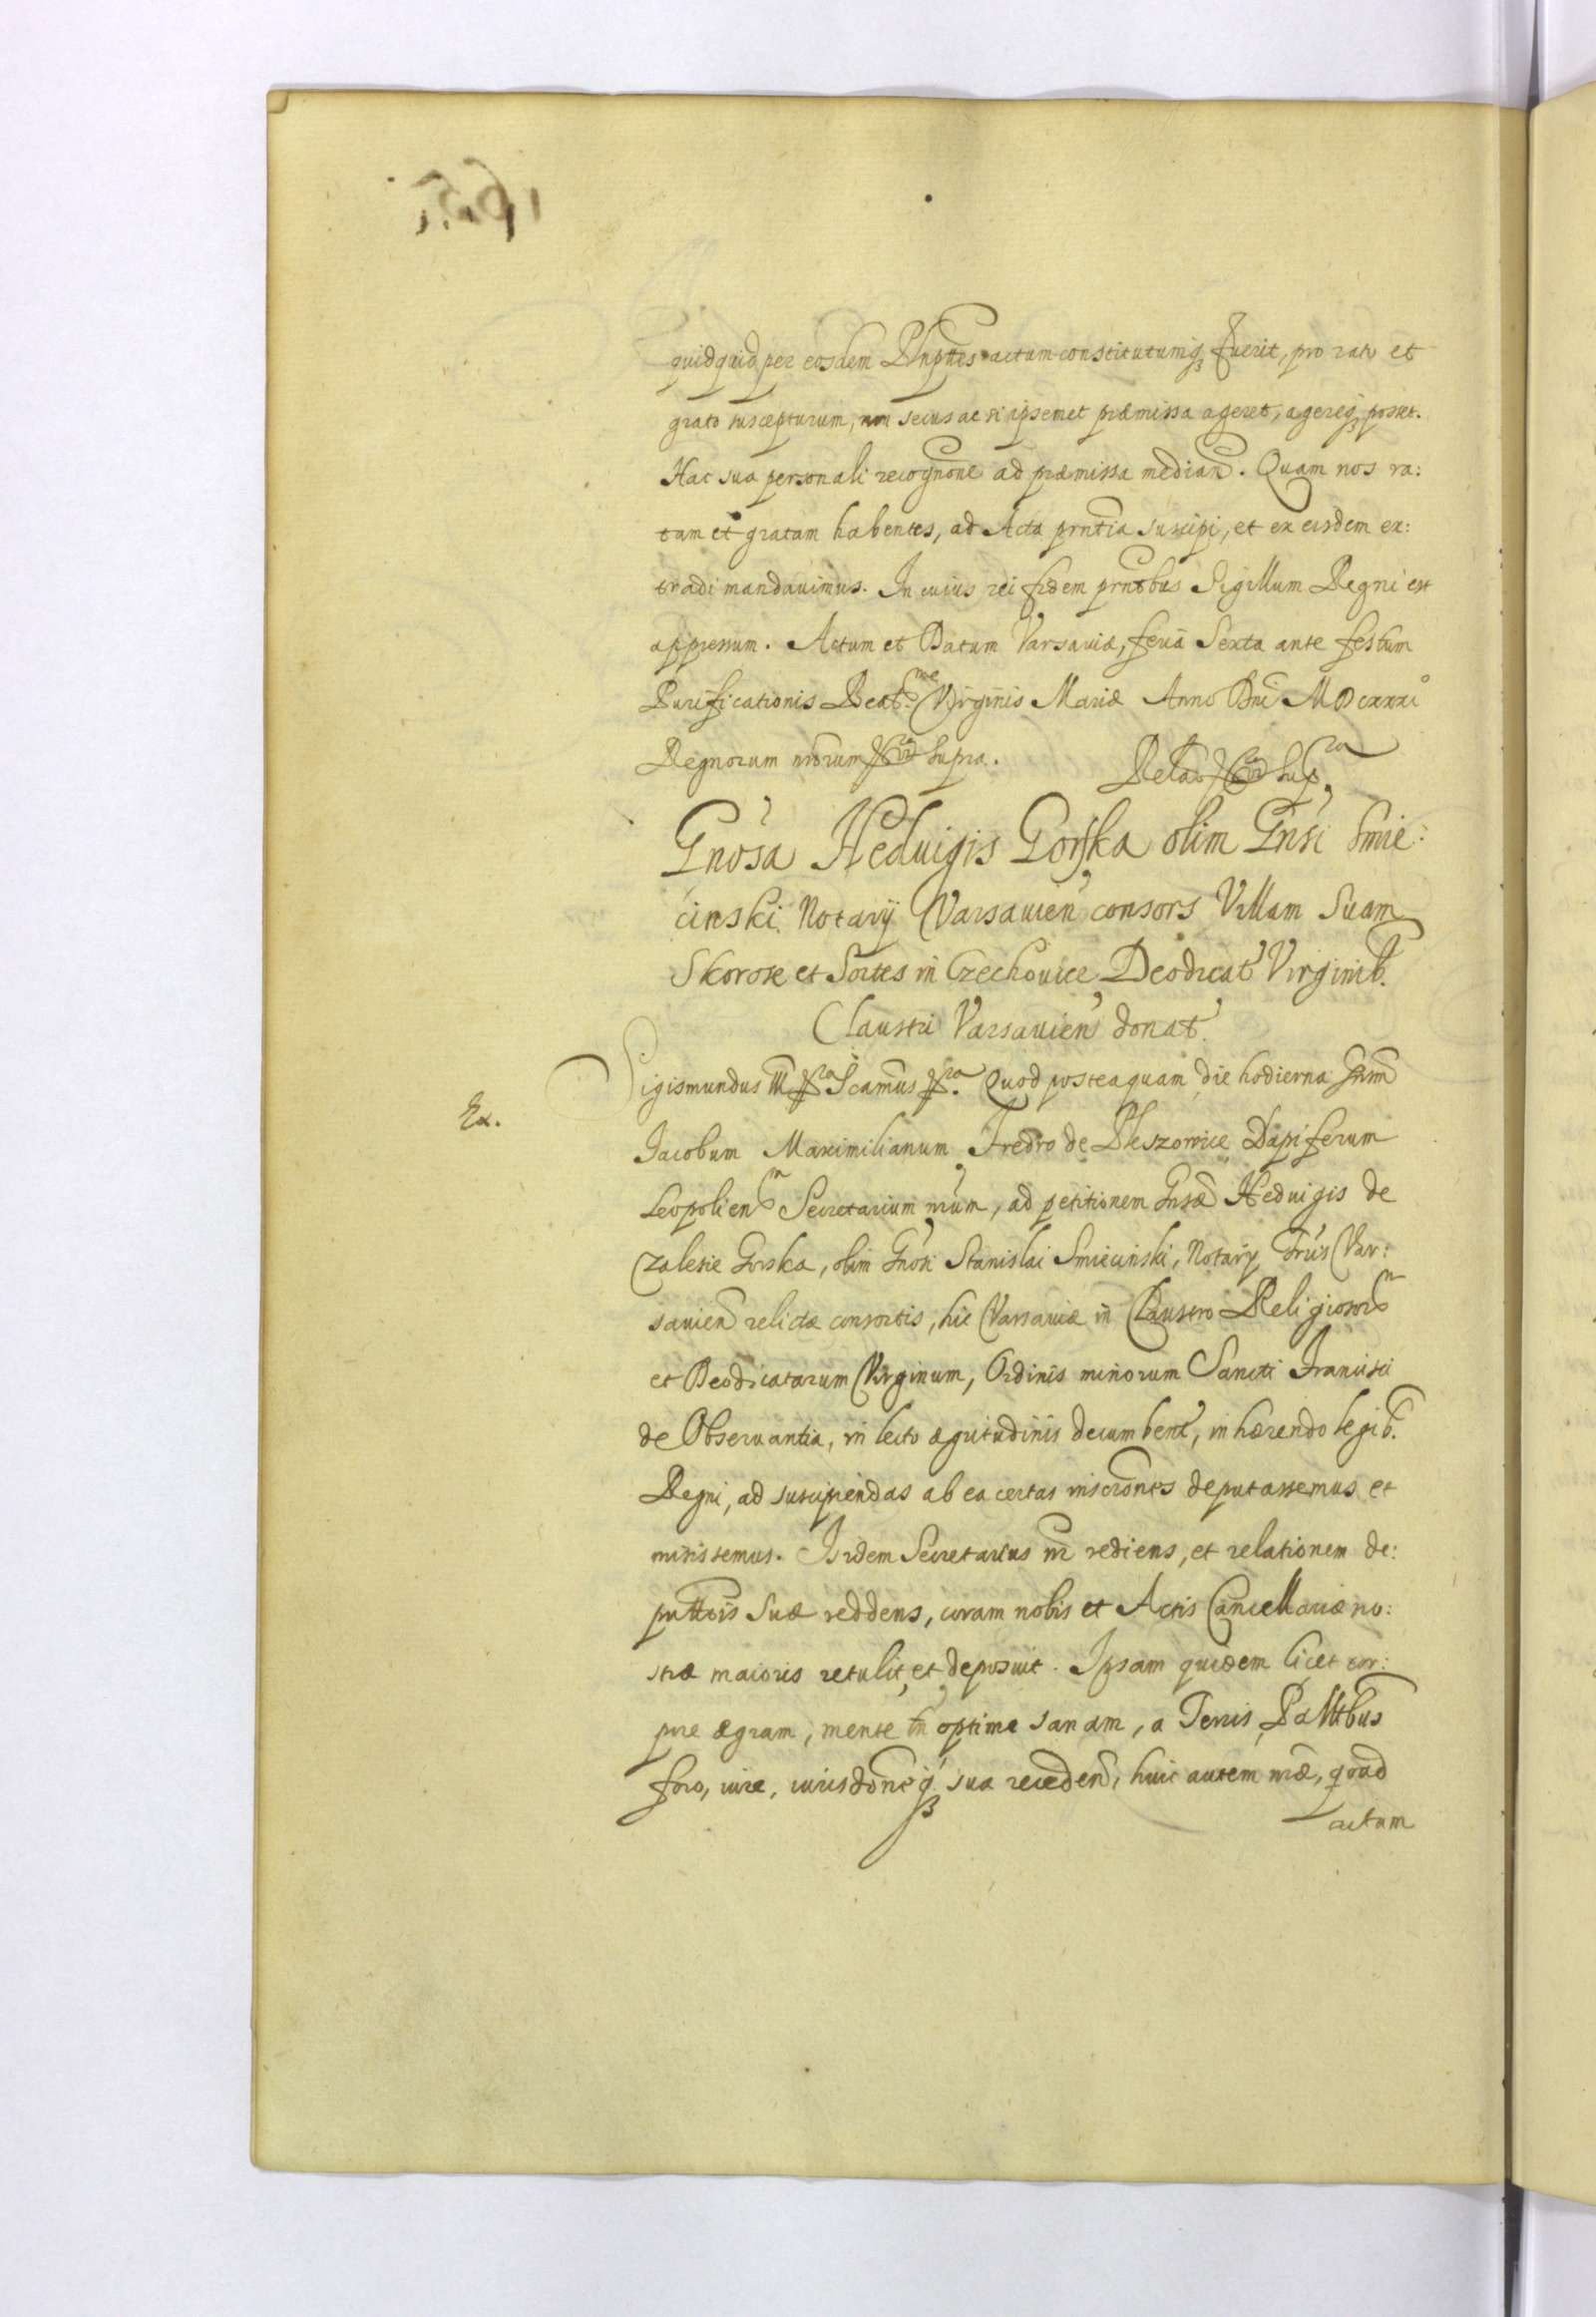 quidquid per eosdem Plnptes actum constitutumq₃ fuerit, pro rato et
grato suscepturum, non secus ac si ipsemet præmissa ageret, agereq₃ posset.
Hac sua personali recognõne ad præmissa median. Quam nos ra:
tam et gratam habentes, ad Acta prntia suscipi, et ex eisdem ex:
tradi mandauimus. In cuius rei fidem prntbus Sigillum Regni est
appressum. Actum et Datum Varsauiæ, feria Sexta ante festum
Purificationis Beatme Virginis Mariæ Anno Dni MDcxxxi°
Regnorum nrorum supra.
Relao supra
Gnosa Heduigis Gorska olim Gnsi Smie:
cinski Notarij Varsauien consors Villam Suam
Skorosze et Sortes in Czechowice Deodicat Virginib.
Claustri Varsauien donat.
Ex.
Sigismundus III ra Scamus ra. Quod posteaquam die hodierna Gnsm
Iacobum Maximilianum Fredro de Pleszowice Dapiferum
Leopolien Secretarium nrum, ad petitionem Gnsæ Heduigis de
Zalesie Gorska, olim Gnosi Stanislai Smiecinski, Notarij Trris Var:
sauien relictæ consortis, hic Varsauiæ in Claustro Religiosor
et Deodicatarum Virginum, Ordinis minorum Sancti Francisci
de Obseruantia, in lecto ægritudinis decumbent, inhærendo legib.
Regni, ad suscipiendas ab ea certas inscrõnes deputassemus et
misissemus. Isidem Secretarius nr rediens, et relationem de:
puttõis suæ reddens, coram nobis et Actis Cancellariæ no:
stræ maioris retulit, et deposuit. Ipsam quidem licet cor:
pore ægram, mente tn optime sanam, a Terris, Palttbus
foro, iure, iurisdõneq₃ sua receden, huic autem nræ, quoad
actum